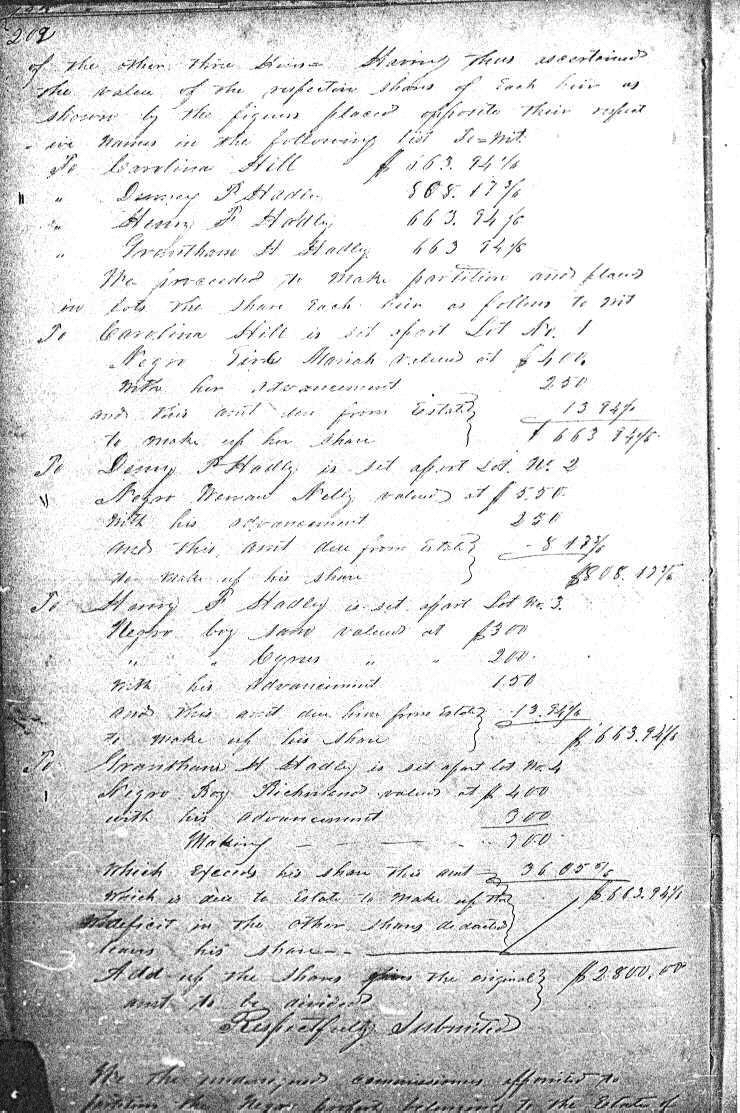 202
of the other three Heirs = Having thus ascertained
the value of the respective shares of Each heir as
shown by the figures placed opposite their respect
ive names in the following list To=wit.
To Carolina Hill $ 663.94
" Denny P Hadley 808.17
" Henry F Hadley 663.94
" Grantham H Hadley 663 94
We proceeded to make partition and placed
in lots the share Each heir as follows to wit
To Carolina Hill is set apart Lot No. 1
Negro Girl Mariah valued at $400
with her advancement 250
and this amt due from Estate 13 94
to make up her share $ 663 94
To Denny P Hadley is set apart Lot. No. 2
" Negro Woman Nelly valued at $550
with his advancement 250
and this amt due from Estate 8 17
to make up his share $808.17
To Henry F Hadley is set apart Lot No. 3.
Negro boy Sam valued at $300
" " Cyrus " " 200
with his Advancement 150
and this amt due him from Estate 13.94
to make up his share $663.94
To Grantham H Hadley is set apart lot No. 4
Negro Boy Richmond valued at $400
with his advancement 300
Making 700
Which Exceeds his share this amt 36 05
Which is due to Estate to make up the $663.94
deficit in the other shares deducted
leaves his share
Add up the shares gives the original $2800.00
amt to be divided
Respectfully Submitted
We the undersigned commissioners appointed to
partition the Negro property belonging to the Estate of